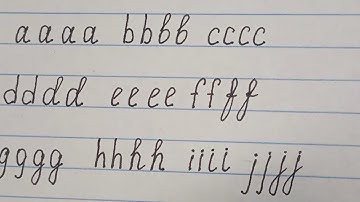 aaaa bbbb cccc
dddd eeee ffff
gggg hhhh iiii jjjj